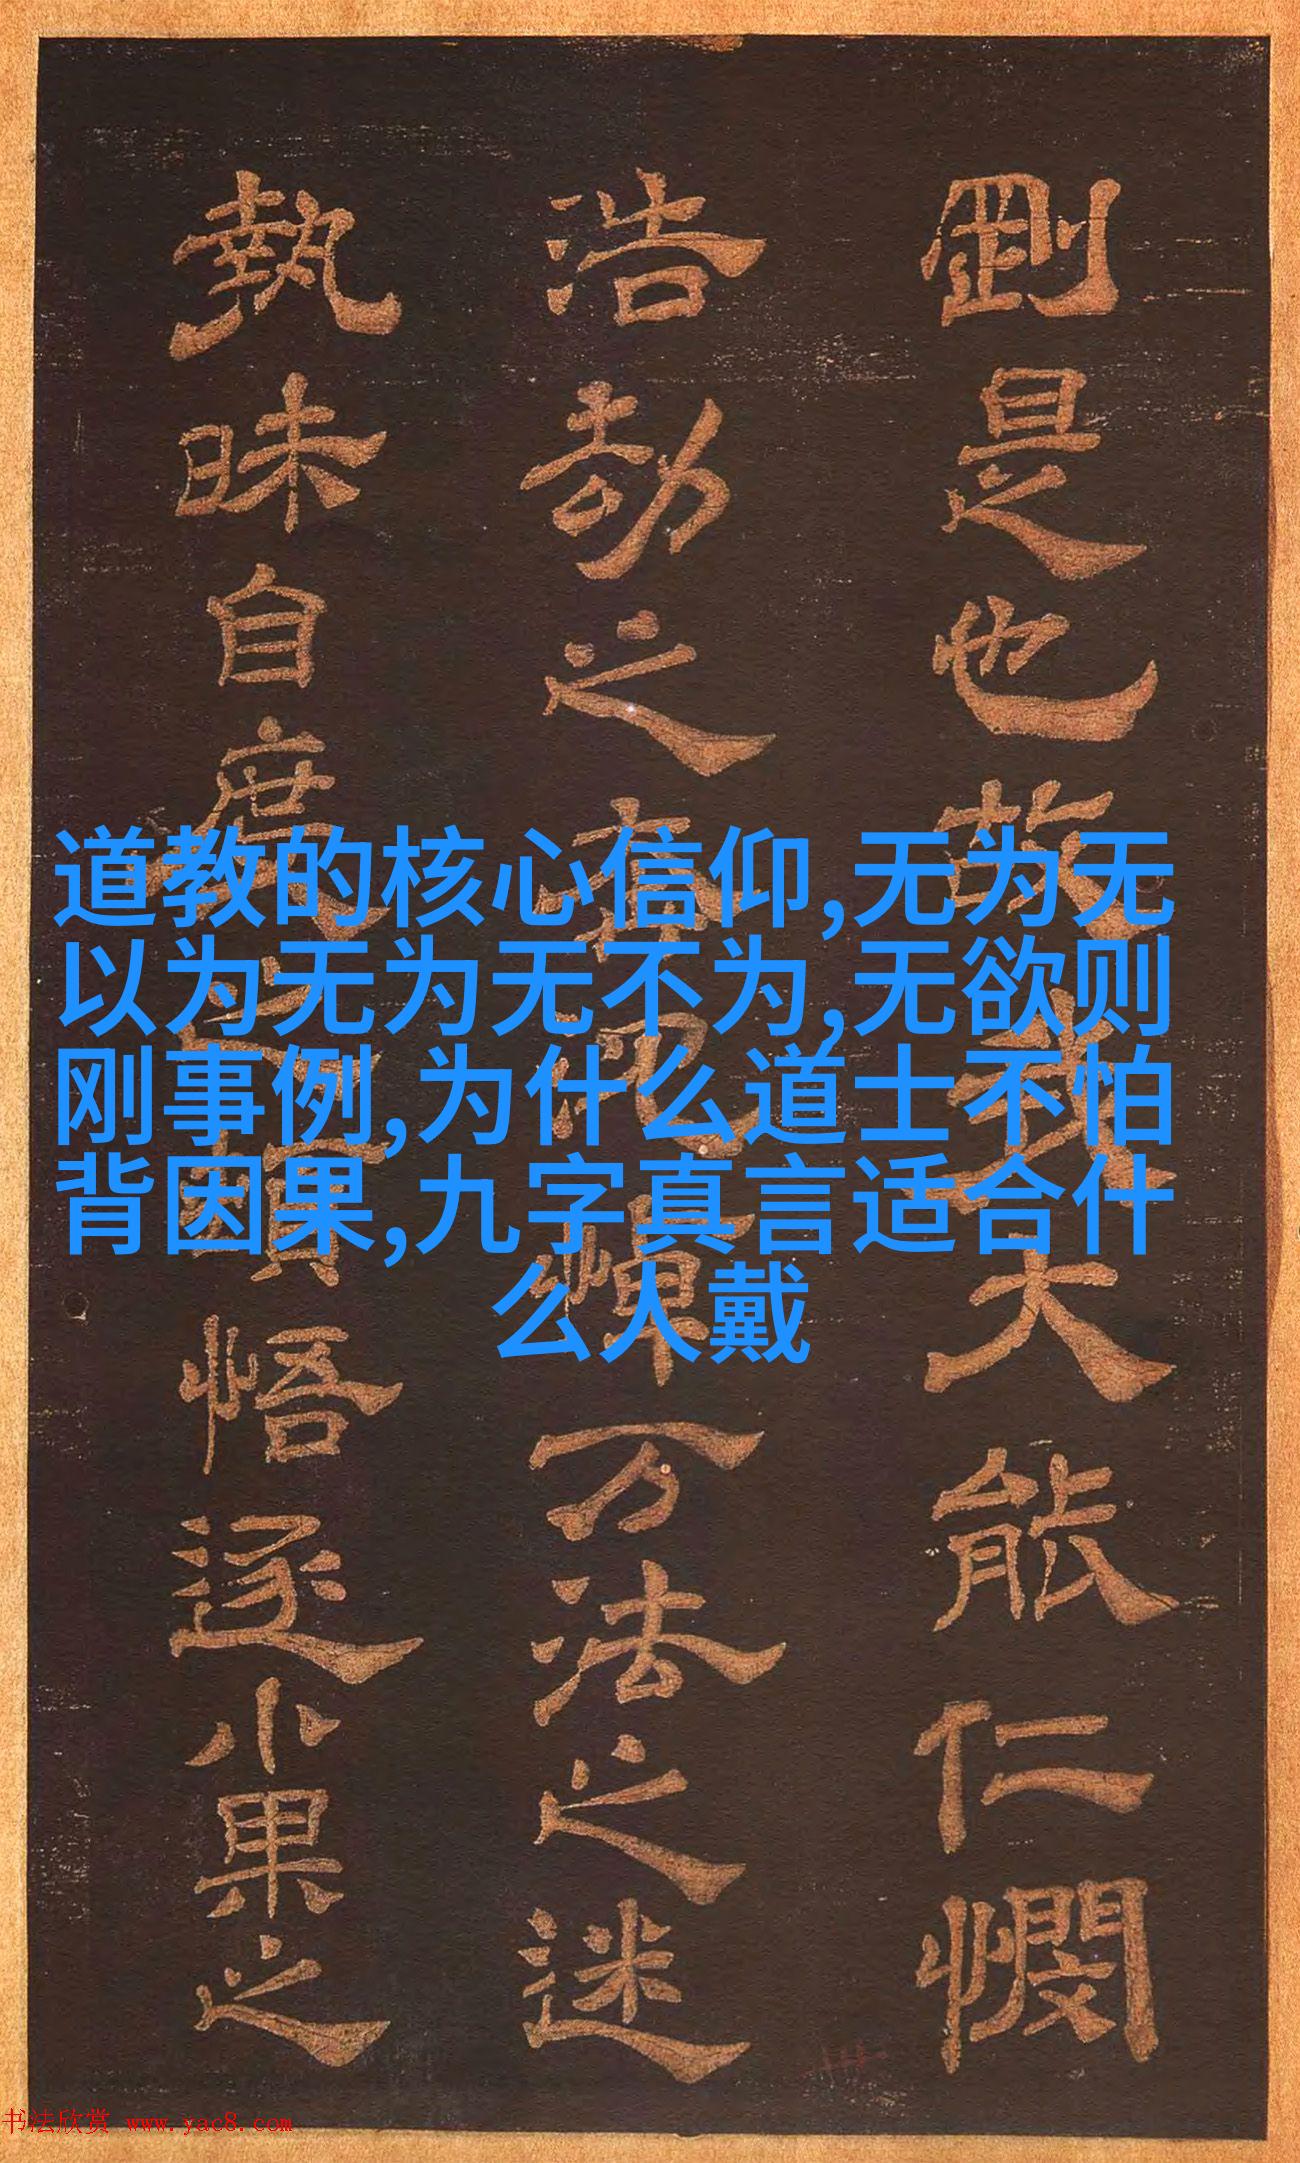 剛是也故我大能仁憫
浩劫之憚万法之迷
執昧自度之悟逐小果之
道教的核心信仰,无为无
以为无为无不为,无欲则
刚事例,为什么道士不怕
背因果,九字真言适合什
么人戴
书法欣赏 www.yac8.com